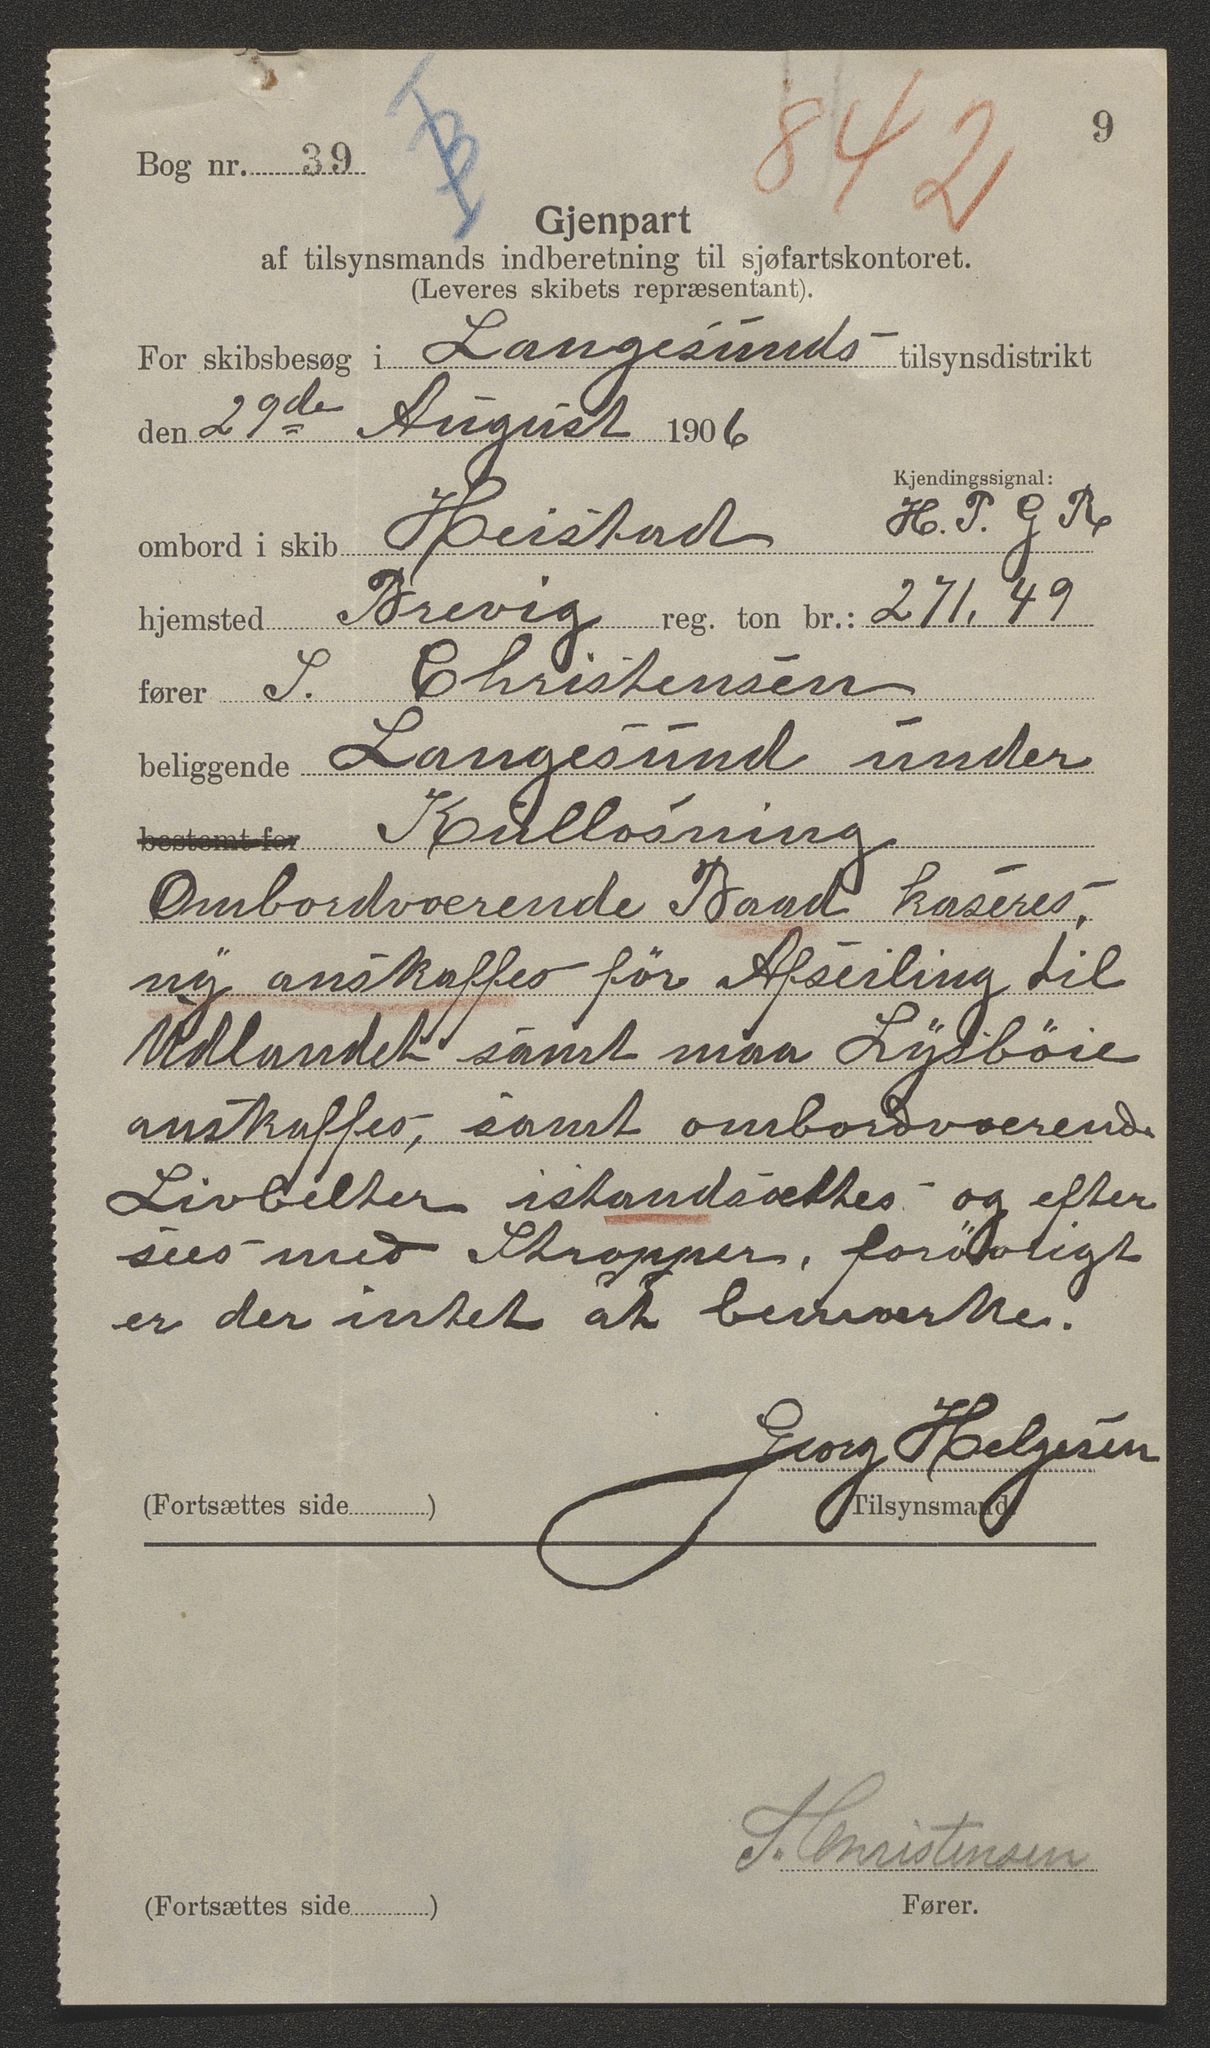 842
9
Bog nr. 39
Gjenpart
af tilsynsmands indberetning til sjøfartskontoret.
(Leveres skibets repræsentant).
For skibsbesøg i Langesunds tilsynsdistrikt
den 29de August 1906
Kjendingssignal:
ombord i skib Heistad H. P. G R
hjemsted Brevig reg. ton br.: 271,49
fører S. Christensen
beliggende Langesund under
bestemt for Kullosning
Ombordværende Baad kaseres,
ny anskaffes för Afseiling til
Udlandet samt maa Lysböie
anskaffes, samt ombordværende
Livbelter istandsættes og efter
sees med Stropper, forövrigt
er der intet at bemærke.
Georg Helgesen
(Fortsættes side ) Tilsynsmand.
S. Christensen
(Fortsættes side ) Fører.